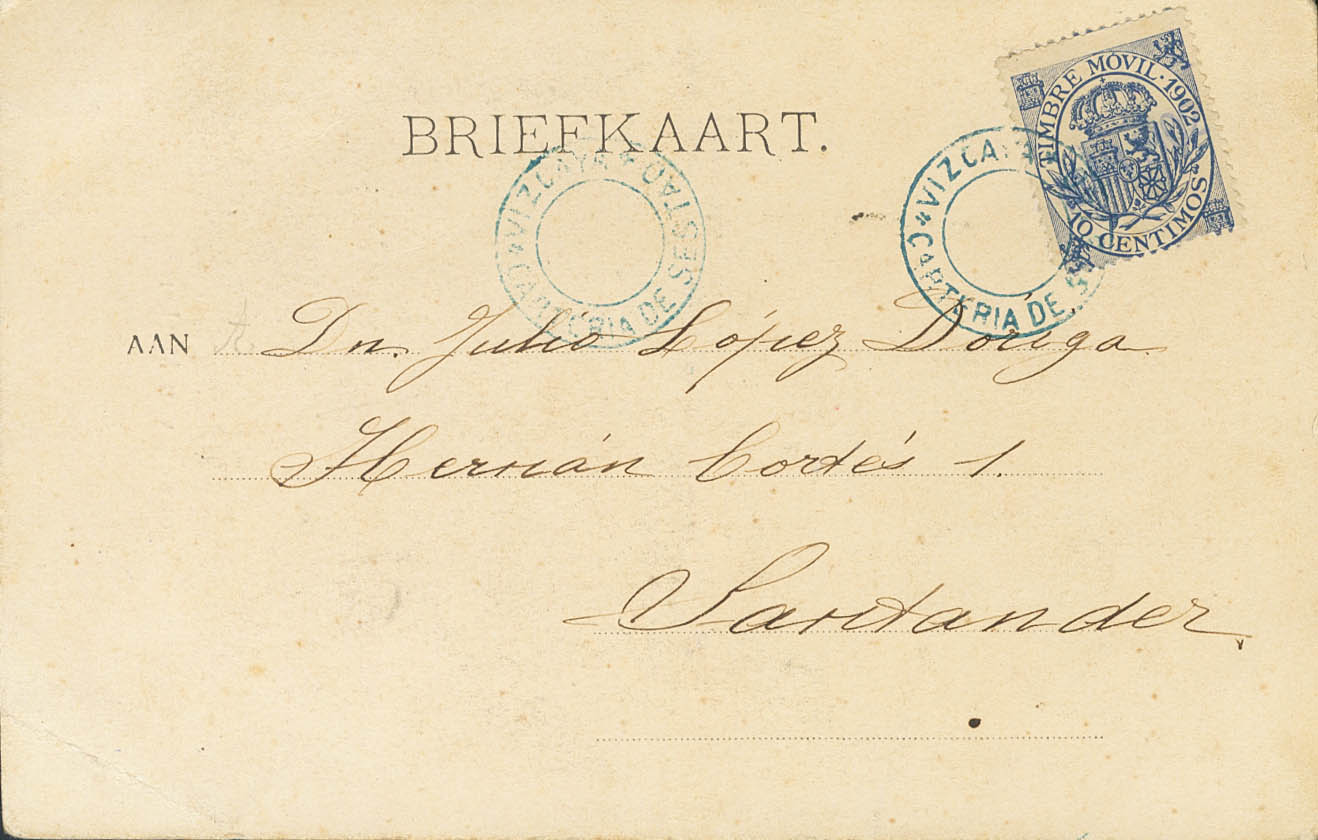 BRIEFKAART.
TIMBRE MÓVIL·1902
10 CENTIMOS
VIZCAYA
CARTERIA DE SESTAO
VIZCAYA
CARTERIA DE S
AAN Dn. Julio López Dóriga
Hernán Cortés 1.
Santander